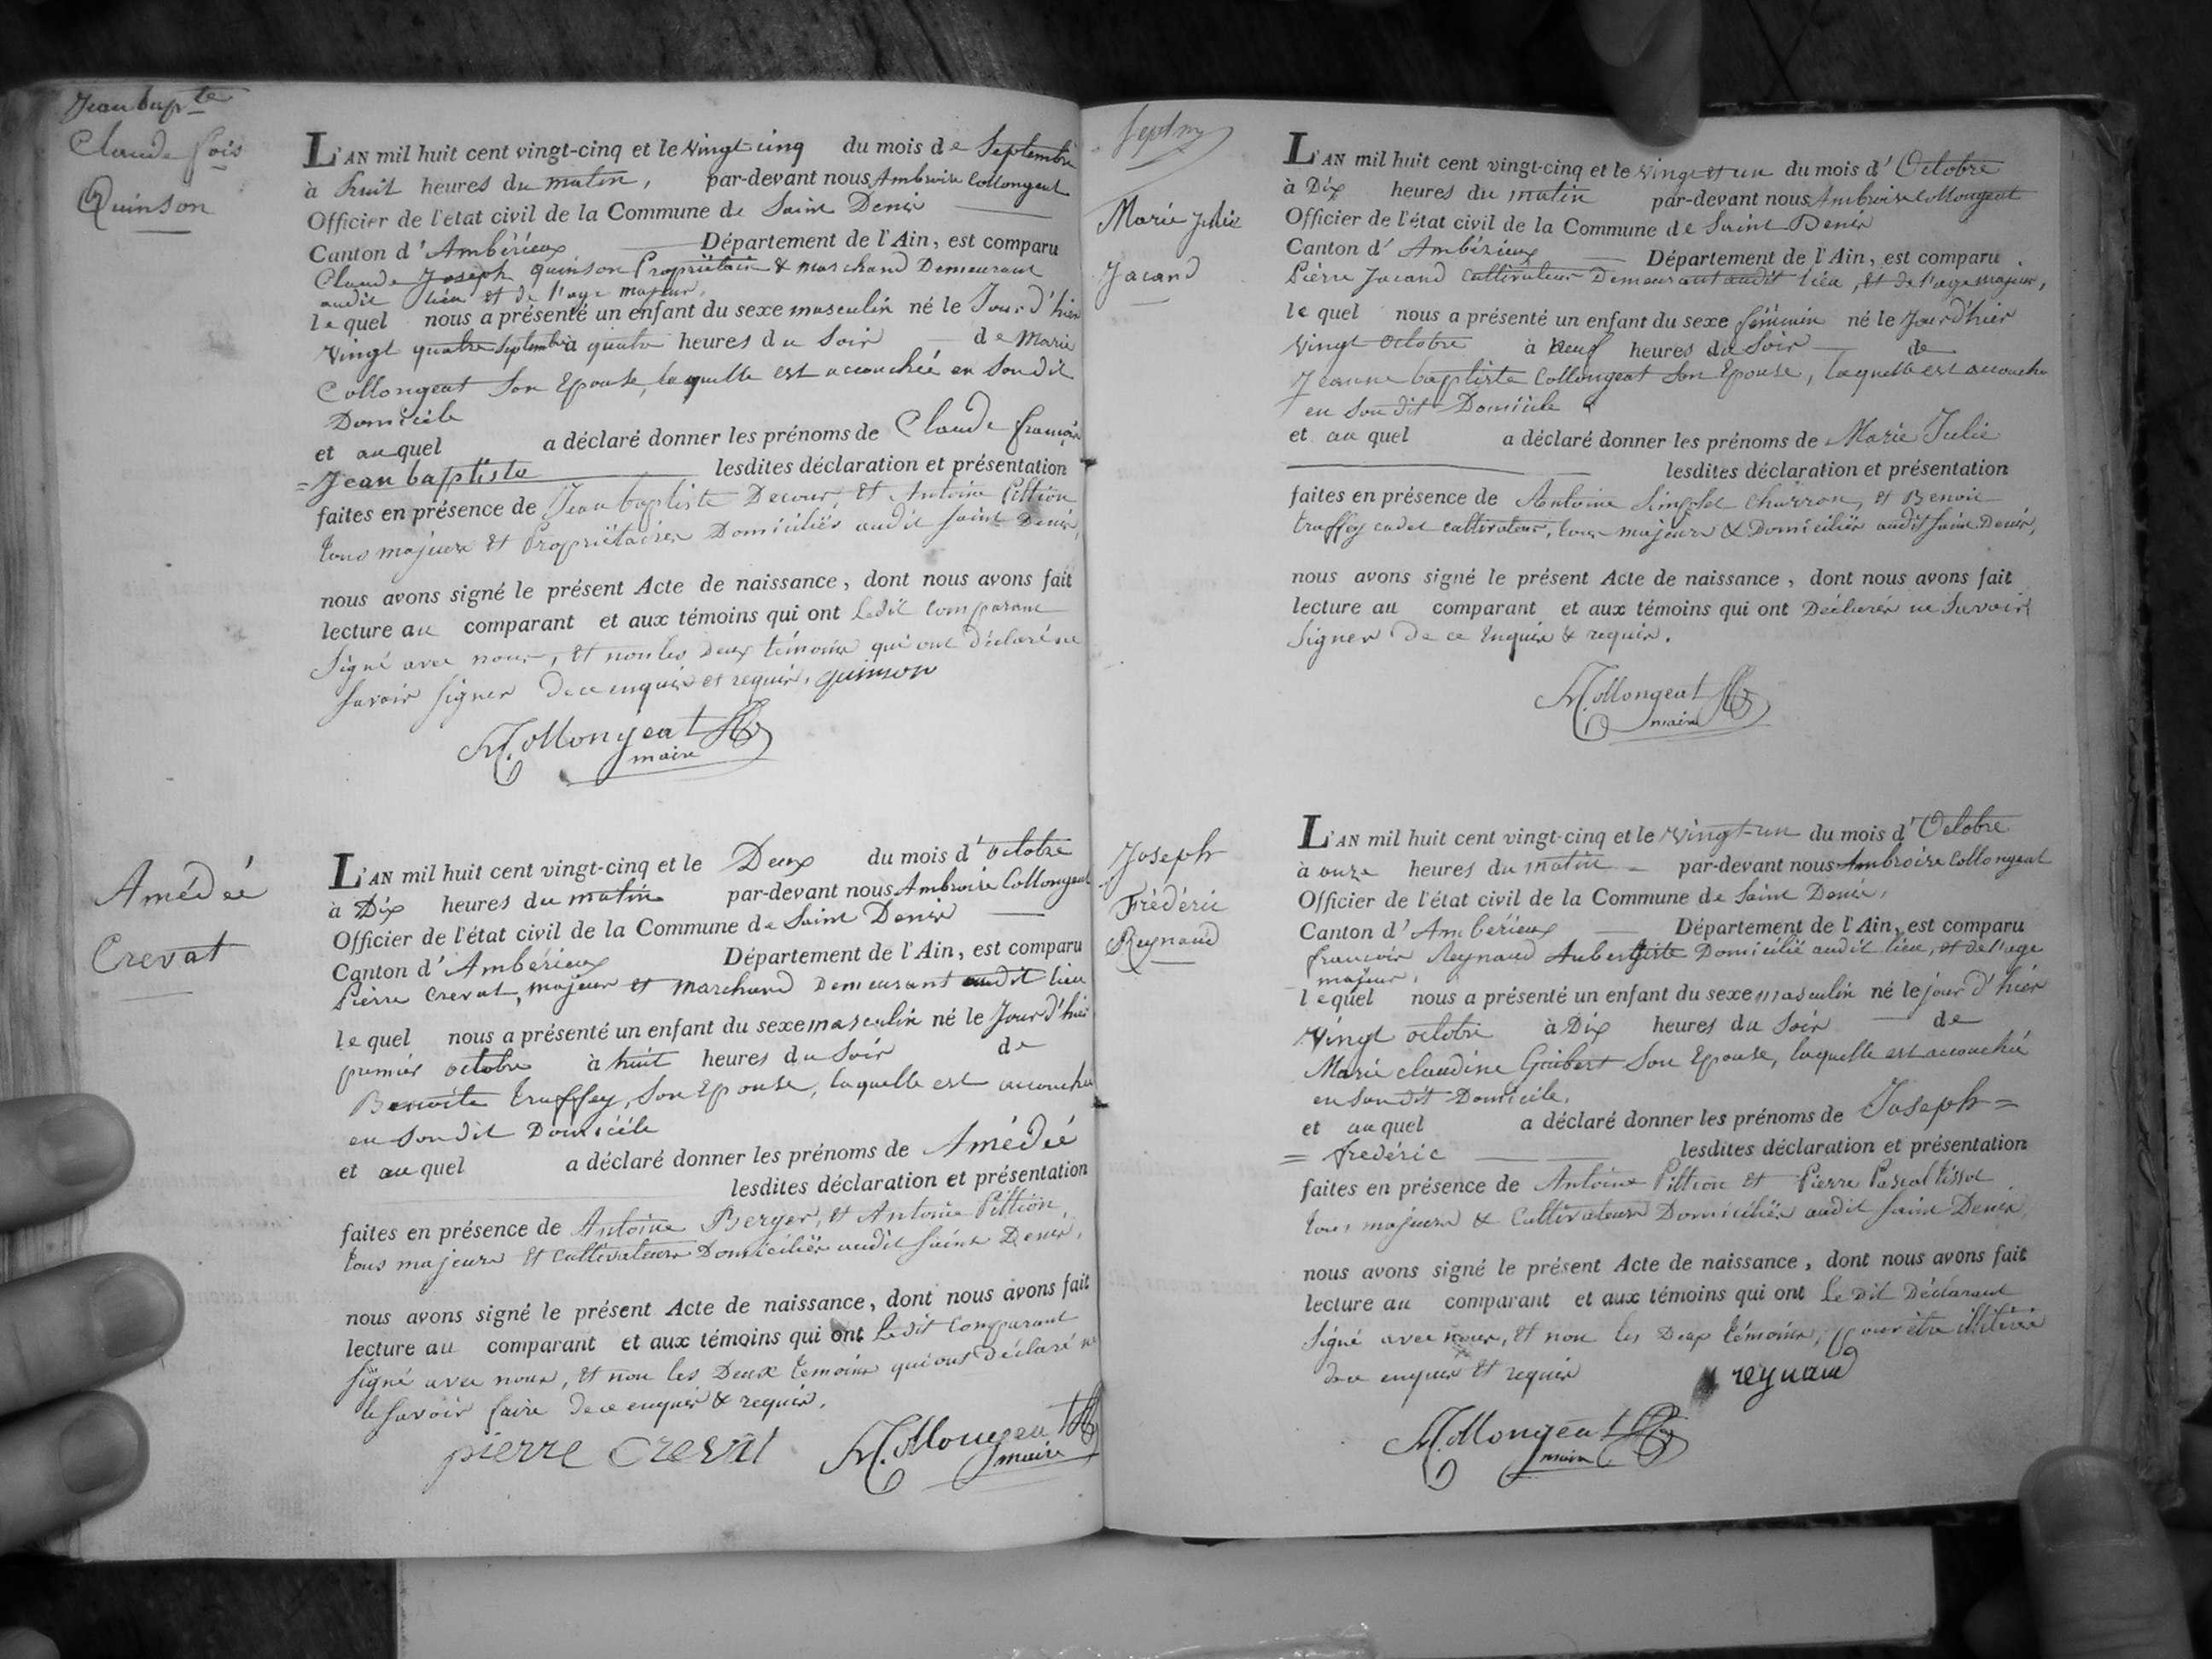 Jean bapte
Claude fois
Quinson
L'AN mil huit cent vingt-cinq et le vingt cinq du mois de Septembre
à huit heures du matin, par-devant nous Ambroise Collongeat
Officier de l'état civil de la Commune de Saint Denis
Canton d'Ambérieux Département de l'Ain, est comparu
Claude Joseph quinson Propriétaire & marchand Demeurant
audit lieu et de l'age majeur,
lequel nous a présenté un enfant du sexe masculin né le Jour d'hier
vingt quatre septembre à quatre heures du Soir de Marie
Collongeat Son Epouse, laquelle est accouchée en Son dit
Domicile
et auquel a déclaré donner les prénoms de Claude françois
=Jean baptiste lesdites déclaration et présentation
faites en présence de Jean baptiste Decour, et Antoine Pittion
tous majeurs et Propriétaires Domiciliés audit Saint Denis,
nous avons signé le présent Acte de naissance, dont nous avons fait
lecture au comparant et aux témoins qui ont Ledit comparant
Signé avec nous, et non les Deux témoins qui ont déclaré ne
Savoir Signer de ce enquis et requis. quinson
Collongeat
maire
Amédée
Crevat
L'AN mil huit cent vingt-cinq et le Deux du mois d'octobre
à Dix heures du matin par-devant nous Ambroise Collongeat
Officier de l'état civil de la Commune de Saint Denis
Canton d'Ambérieux Département de l'Ain, est comparu
Pierre Crevat, majeur et marchand Demeurant audit lieu
lequel nous a présenté un enfant du sexe masculin né le Jour d'hier
premier octobre à huit heures du Soir de
Benoite truffey, Son Epouse, laquelle est accouchée
en Son dit Domicile
et auquel a déclaré donner les prénoms de Amédée
lesdites déclaration et présentation
faites en présence de Antoine Berger, et Antoine Pittion,
tous majeurs et cultivateurs Domiciliés audit Saint Denis,
nous avons signé le présent Acte de naissance, dont nous avons fait
lecture au comparant et aux témoins qui ont Ledit Comparant
Signé avec nous, et non les Deux témoins qui ont déclaré ne
le Savoir faire de ce enquis & requis.
pierre Crevat Collongeat
maire
Marie Julie
Jacand
L'AN mil huit cent vingt-cinq et le vingt et un du mois d'Octobre
à Dix heures du matin par-devant nous Ambroise Collongeat
Officier de l'état civil de la Commune de Saint Denis
Canton d'Ambérieux Département de l'Ain, est comparu
Pierre Jacand Cultivateur Demeurant audit lieu, et de l'age majeur,
lequel nous a présenté un enfant du sexe féminin né le Jour d'hier
vingt Octobre à Neuf heures du Soir de
Jeanne baptiste Collongeat Son Epouse, laquelle est accouchée
en Son dit Domicile
et auquel a déclaré donner les prénoms de Marie Julie
lesdites déclaration et présentation
faites en présence de Antoine charron, et Benoit
truffey cadet cultivateur, tous majeurs & Domiciliés audit Saint Denis,
nous avons signé le présent Acte de naissance, dont nous avons fait
lecture au comparant et aux témoins qui ont Déclarés ne Savoir
Signer de ce Enquis & requis.
Collongeat
maire
Joseph
Frédéric
Reynaud
L'AN mil huit cent vingt-cinq et le vingt-un du mois d'Octobre
à onze heures du matin par-devant nous Ambroise Collongeat
Officier de l'état civil de la Commune de Saint Denis,
Canton d'Ambérieux Département de l'Ain, est comparu
francois Reynaud Aubergiste Domicilié audit lieu, et de l'age
majeur,
lequel nous a présenté un enfant du sexe masculin né le jour d'hier
Vingt octobre à Dix heures du Soir de
Marie claudine Guibert Son Epouse, laquelle est accouchée
en Son dit Domicile,
et auquel a déclaré donner les prénoms de Joseph=
=frédéric lesdites déclaration et présentation
faites en présence de Antoine Pittion et Pierre Pascal tissot
tous majeurs & Cultivateurs Domiciliés audit Saint Denis
nous avons signé le présent Acte de naissance, dont nous avons fait
lecture au comparant et aux témoins qui ont Le Dit Déclarant
Signé avec nous, et non les Deux témoins, pour être illitérés
de ce enquis et requis reynaud
Collongeat
maire